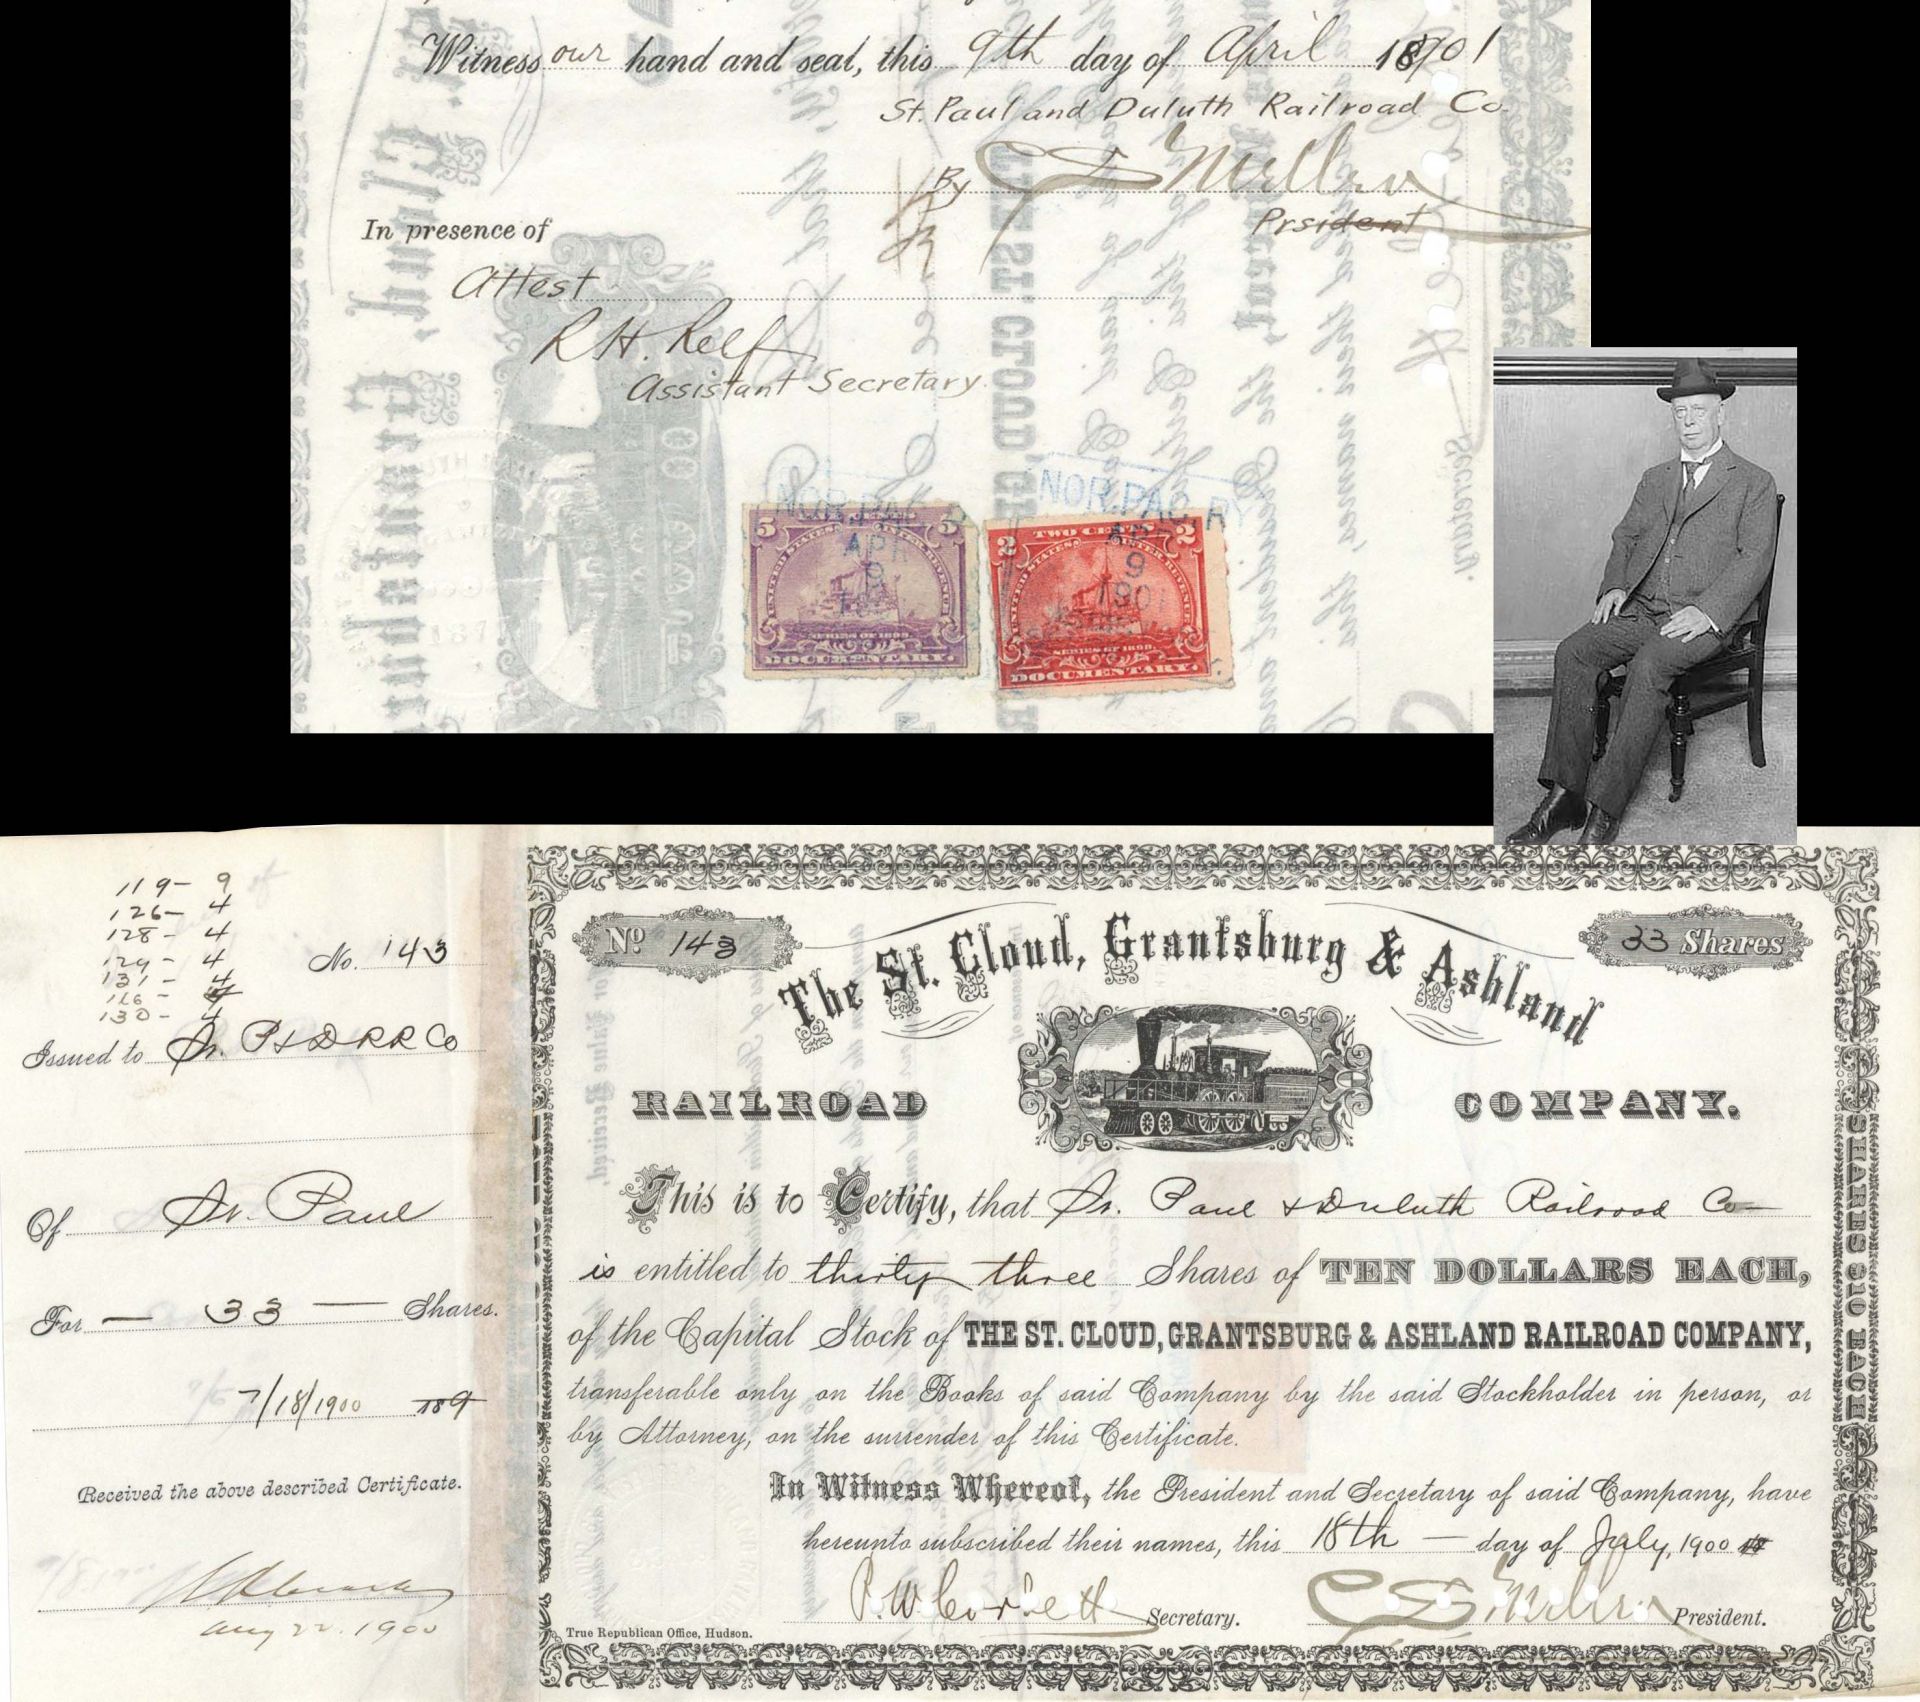 Witness our hand and seal, this 9th day of April 18 1901
St. Paul and Duluth Railroad Co.
By
Prsident
In presence of
Attest
R H. Relf
Assistant Secretary.
NOR. PAC. RY
APR
9
5 5
UNITED STATES INTER. REVENUE
SERIES OF 1898
DOCUMENTARY.
NOR. PAC. RY
9
1901
2 TWO CENTS 2
UNITED STATES INTER. REVENUE
SERIES OF 1898.
DOCUMENTARY.
119 - 9
126 - 4
128 - 4
129 - 4
131 - 4
116 - 4
130 - 4
No. 143
Issued to St. P & D R R Co
Of St. Paul
For — 33 — Shares.
7/18/1900 189
Received the above described Certificate.
Aug 22. 1900
No 143
33 Shares
The St. Cloud, Grantsburg & Ashland
RAILROAD COMPANY.
This is to Certify, that St. Paul & Duluth Railroad Co —
is entitled to thirty three Shares of TEN DOLLARS EACH,
of the Capital Stock of THE ST. CLOUD, GRANTSBURG & ASHLAND RAILROAD COMPANY,
transferable only on the Books of said Company by the said Stockholder in person, or
by Attorney, on the surrender of this Certificate.
In Witness Whereof, the President and Secretary of said Company, have
hereunto subscribed their names, this 18th — day of July, 1900 18
P. W. Corbett Secretary. President.
True Republican Office, Hudson.
SHARES $10 EACH